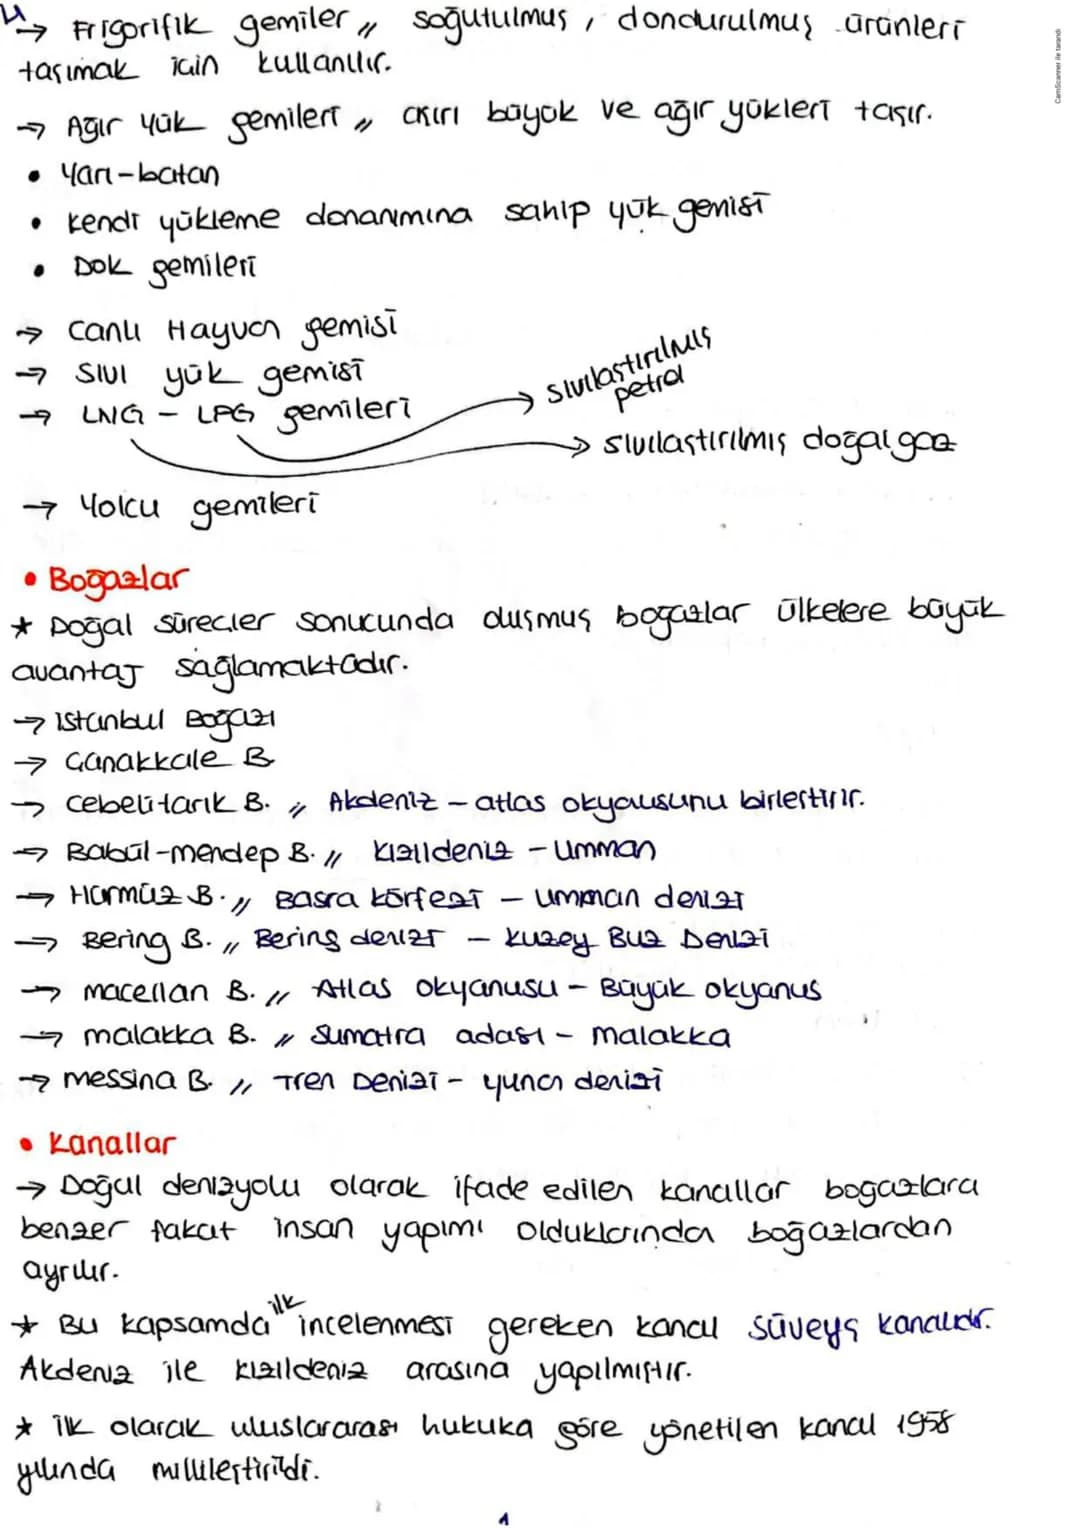 → Frigorifik gemiler // soğutulmuş, dondurulmuş ürünleri
taşımak için kullanılır.
→ Ağır yük gemileri // aşırı büyük ve ağır yükleri taşır.
• Yarı-batan
• kendi yükleme donanımına sahip yük gemisi
• Dok gemileri
→ Canlı Hayvan gemisi
→ Sıvı yük gemisi
→ LNG - LPG gemileri
→ sıvılaştırılmış
petrol
→ sıvılaştırılmış doğalgaz
→ Yolcu gemileri
• Boğazlar
★ Doğal süreçler sonucunda oluşmuş boğazlar ülkelere büyük
avantaj sağlamaktadır.
→ İstanbul Boğazı
→ Çanakkale B.
→ Cebelitarık B. // Akdeniz - atlas okyausunu birleştirir.
→ Babül-mendep B. // Kızıldeniz - Umman
→ Hürmüz B. // Basra körfezi - umman denizi
→ Bering B. // Bering denizi - Kuzey Buz Denizi
→ macellan B. // Atlas okyanusu - Büyük okyanus
→ malakka B. // Sumatra adası - Malakka
→ messina B. // Tren Denizi - yunan denizi
• Kanallar
→ Doğal denizyolu olarak ifade edilen kanallar boğazlara
benzer fakat insan yapımı olduklarından boğazlardan
ayrılır.
★ Bu kapsamda ilk incelenmesi gereken kanal Süveyş kanalıdır.
Akdeniz ile kızıldeniz arasına yapılmıştır.
★ İlk olarak uluslararası hukuka göre yönetilen kanal 1958
yılında millileştirildi.
CamScanner ile tarandı